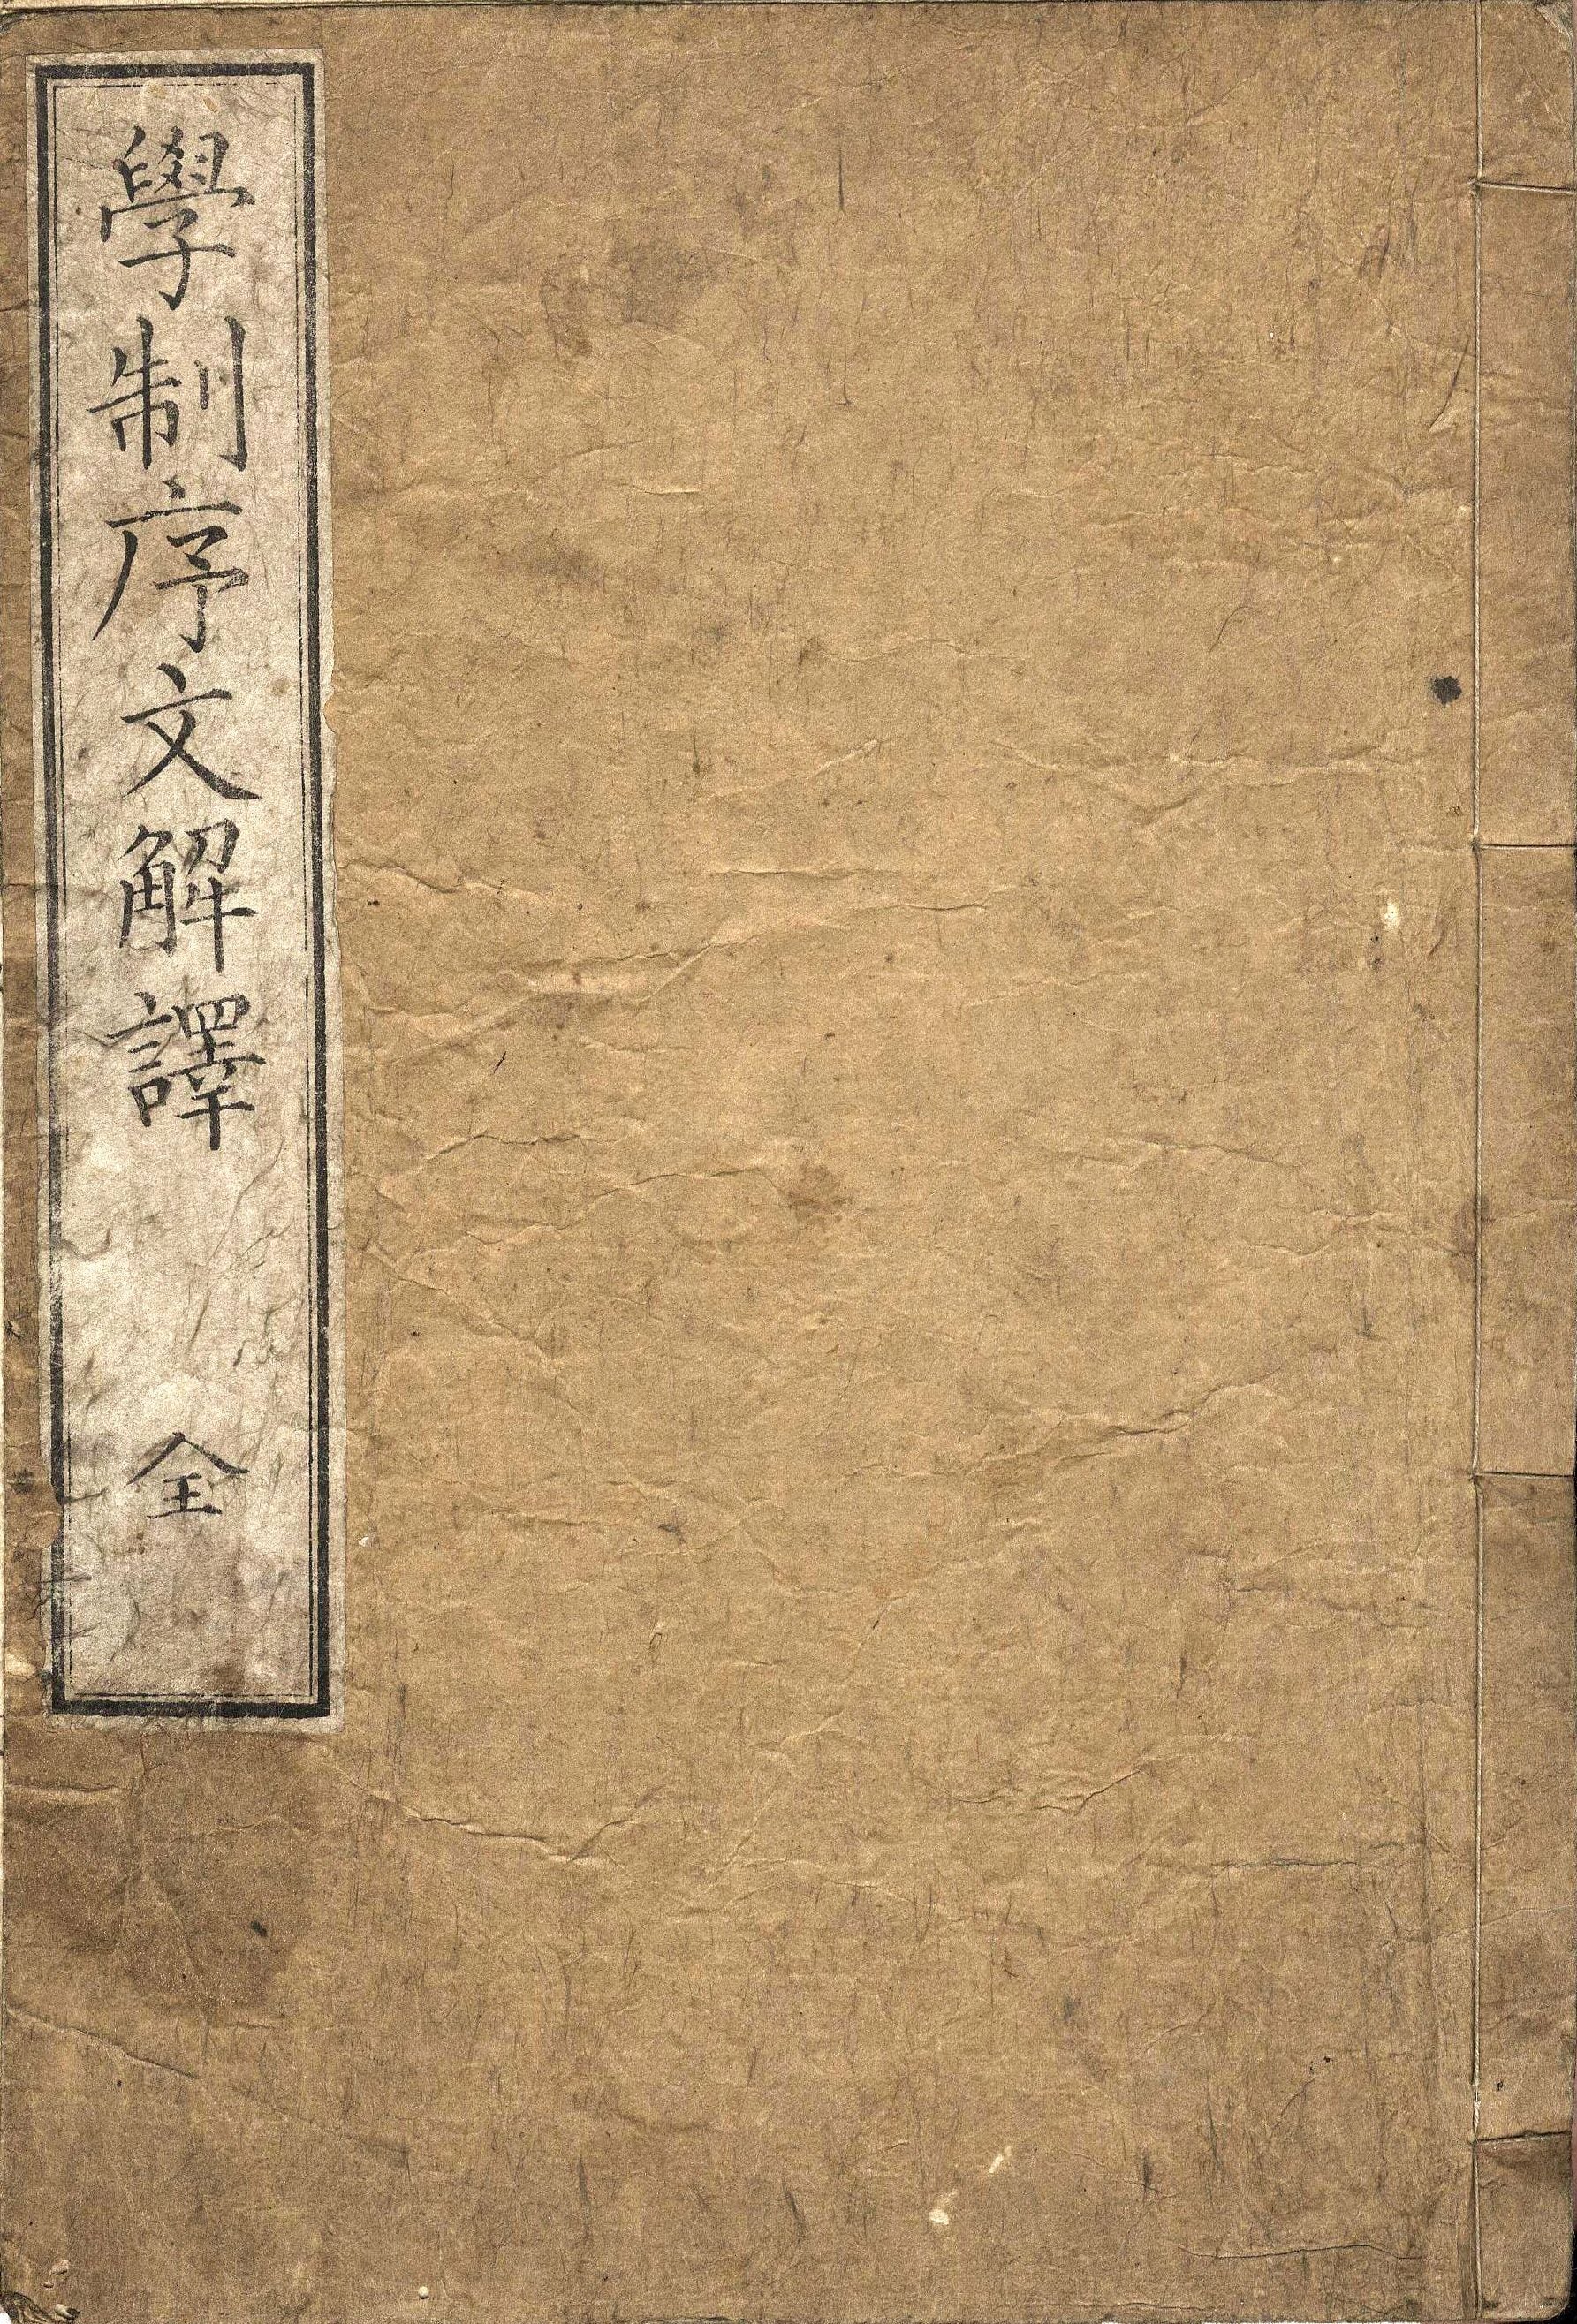 學制序文解譯
全